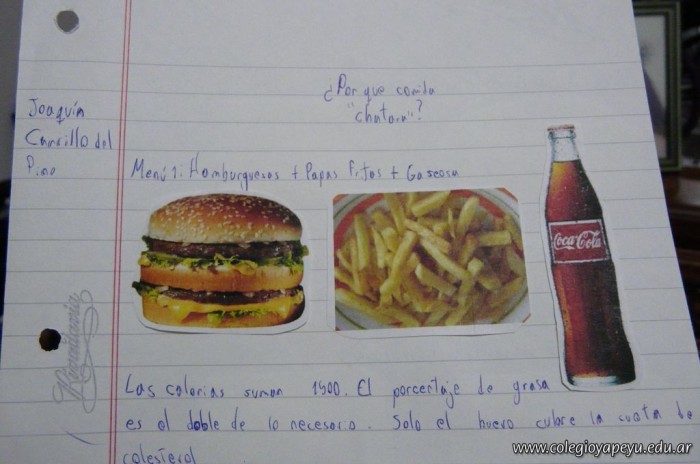 ¿Por que comida
"chatara"?
Joaquín
Carsillo del
Pino
Menú 1: Hamburguesas + Papas fritas + Gaseosa
Coca-Cola
Las calorias suman 1500. El porcentaje de grasa
es el doble de lo necesario. Solo el huevo cubre la cuota de
colesterol
Rivadavia
www.colegioyapeyu.edu.ar